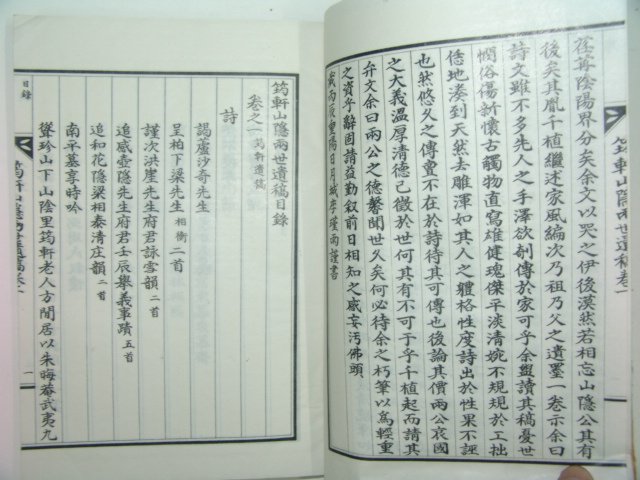 荏苒陰陽界分矣余文以哭之伊後漠然若相忘山隱公其有
後矣其胤千植繼述家風編次乃祖乃父之遺墨一卷示余曰
詩文雖不多先人之手澤欲剞傳於家可乎余盥讀其稿憂世
憫俗傷新懷古觸物直寫雄健瑰傑平淡淸婉不規規於工拙
恁地湊到天然去雕渾如其人之軆格性度詩出於性果不誣
也然悠久之傳亶不在於詩待其可傳也後論其價兩公哀國
之大義溫厚淸德已徵於世何其有不可于乎千植起而請其
弁文余曰兩公之德馨聞世久矣何必待余之朽筆以爲輕重
之資乎辭固請益勤叙前日相知之感妄汚佛頭
歲丙辰重陽日月城李瑾雨謹書
筠軒山隱兩世遺稿卷一
筠軒山隱兩世遺稿目錄
卷之一 筠軒遺稿
詩
謁盧沙奇先生
呈柏下梁先生 相衡 二首
謹次洪崖先生府君詠雪韻 二首
追感壺隱先生府君壬辰擧義事蹟 五首
追和花隱梁相泰淸庄韻 二首
南平墓享時吟
聳珍山下山陰里筠軒老人方閒居以朱晦菴武夷九
目錄
筠軒山隱兩世遺稿卷一
一